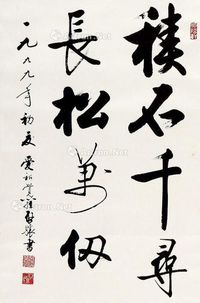 積石千尋
長松萬仞
一九八九年初夏 愛新覺羅啟驤書